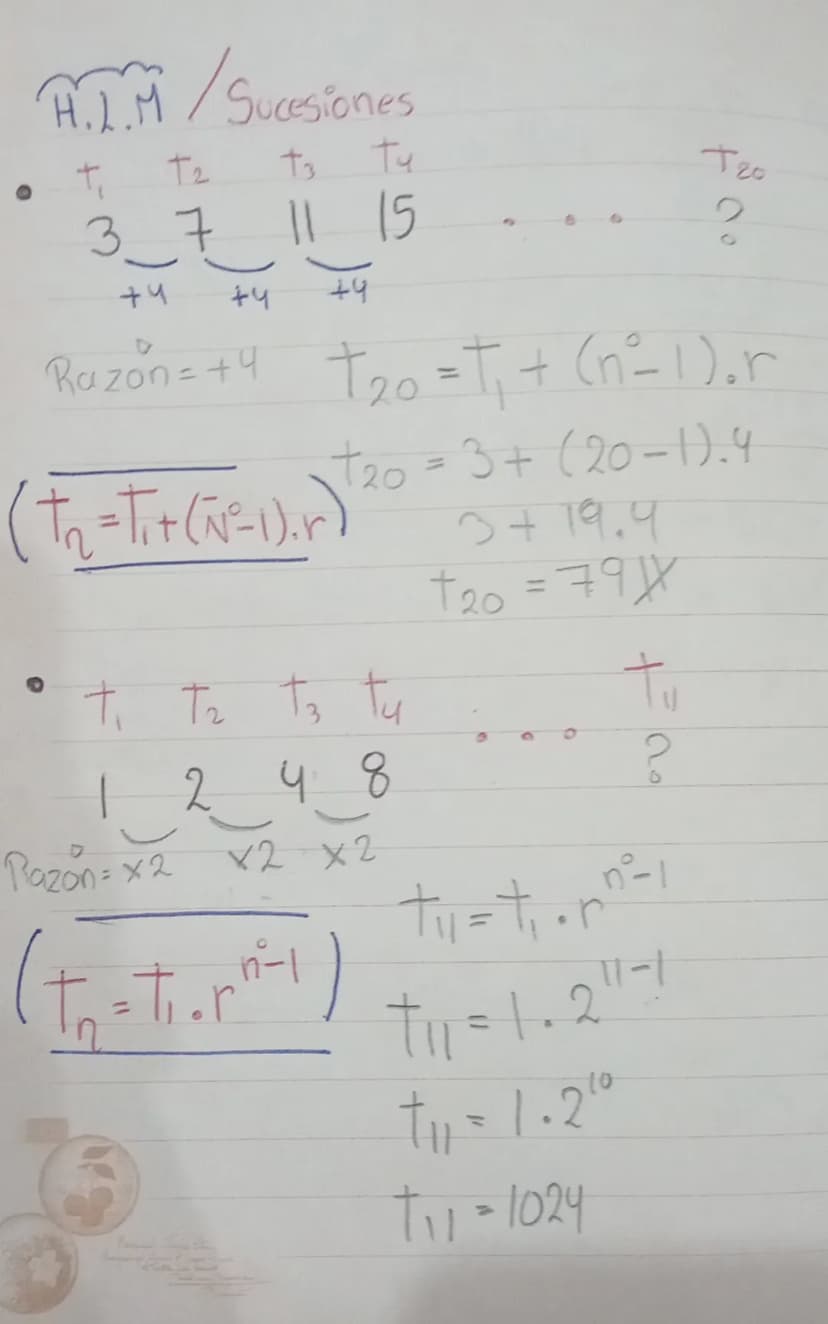 H.L.M / Sucesiones
• T₁ T₂ T₃ T₄ T₂₀
3 7 11 15 . . . ?
+4 +4 +4
Razón = +4
T₂₀ = T₁ + (n°-1).r
T₂₀ = 3 + (20-1).4
(Tₙ = T₁ + (N°-1).r)
3 + 19.4
T₂₀ = 79//
• T₁ T₂ T₃ T₄ . . . T₁₁
1 2 4 8 ?
Razón = x2 x2 x2
T₁₁ = T₁ . r^n°-1
(Tₙ = T₁ . r^n°-1)
T₁₁ = 1 . 2^11-1
T₁₁ = 1 . 2^10
T₁₁ = 1024